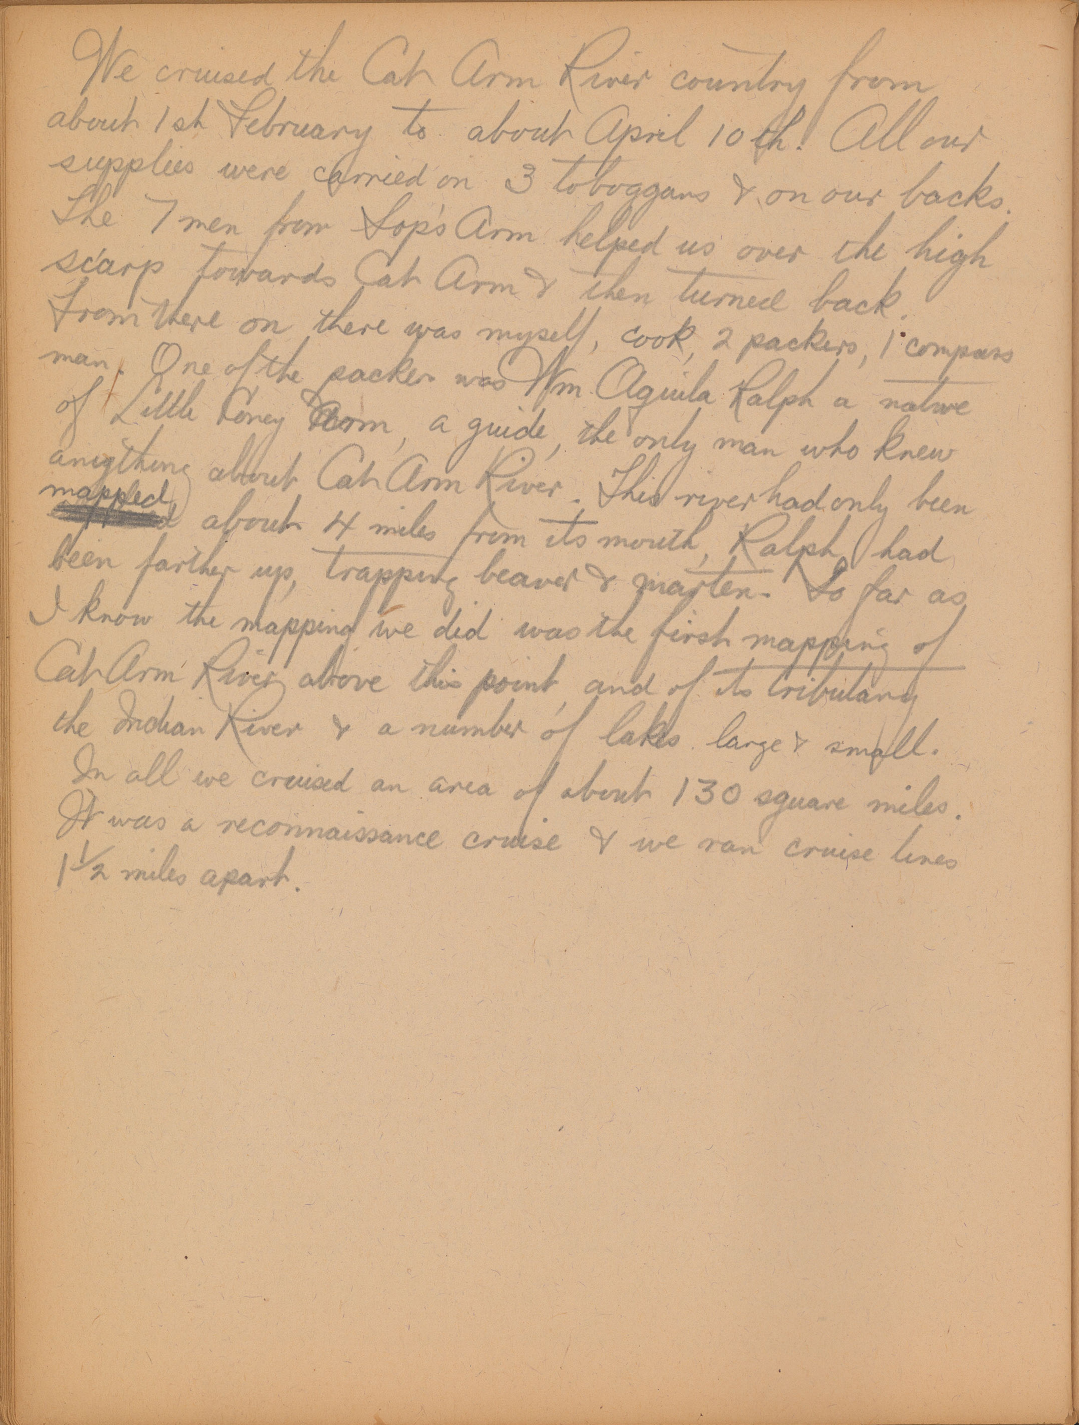 We cruised the Cat Arm River country from
about 1st February to about April 10th. All our
supplies were carried on 3 toboggans & on our backs.
The 7 men from Sop's Arm helped us over the high
scarp towards Cat Arm & then turned back.
From there on there was myself, cook, 2 packers, 1 compass
man. One of the packers was Wm Aquila Ralph a native
of Little Coney Arm, a guide, the only man who knew
anything about Cat Arm River. This river had only been
mapped about 4 miles from its mouth, Ralph had
been farther up, trapping beaver & marten. So far as
I know the mapping we did was the first mapping of
Cat Arm River above this point, and of its tributary
the Indian River & a number of lakes large & small.
In all we cruised an area of about 130 square miles.
It was a reconnaissance cruise & we ran cruise lines
1 1/2 miles apart.